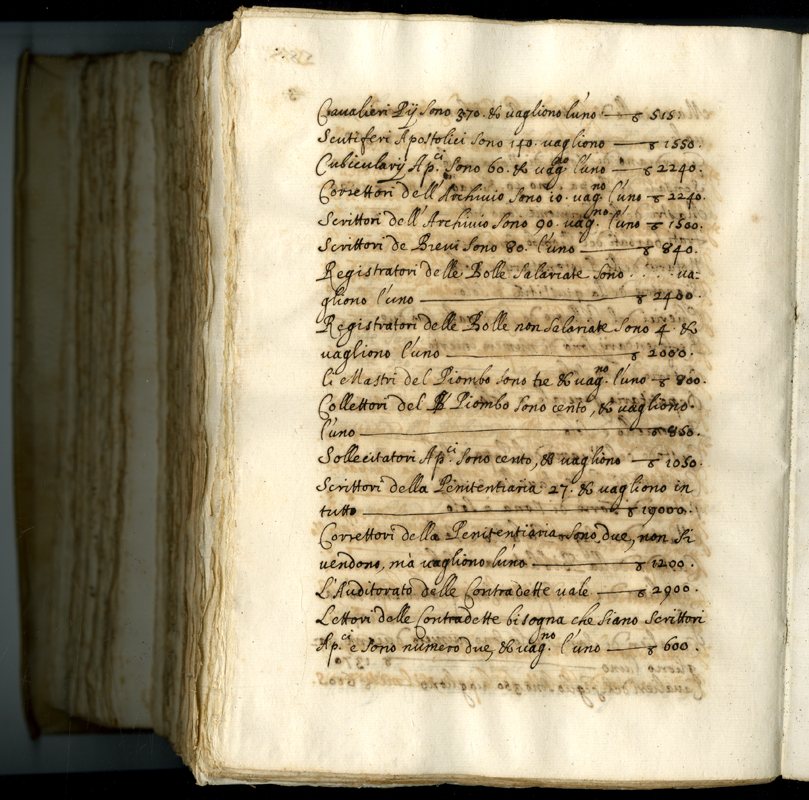 Cavalieri Pij sono 370. & vagliono l'uno — ꝸ 515.
Scutiferi Apostolici sono 140. vagliono — ꝸ 1550.
Cubicularij Ap.ci sono 60. & vag.no l'uno — ꝸ 2240.
Correttori dell'Archivio sono 10. vag.no l'uno — ꝸ 2240.
Scrittori dell'Archivio sono 90. vag.no l'uno — ꝸ 1500.
Scrittori de Brevi sono 80. l'uno — ꝸ 840.
Registratori delle Bolle salariate sono . . . . va:
gliono l'uno — ꝸ 2400.
Registratori delle Bolle non salariate sono 4. &
vagliono l'uno — ꝸ 2000.
li Mastri del Piombo sono tre & vag.no l'uno — ꝸ 800.
Collettori del Piombo sono cento, & vagliono
l'uno — ꝸ 850.
Sollecitatori Ap.ci sono cento, & vagliono — ꝸ 1050.
Scrittori della Penitentiaria 27. & vagliono in
tutto — ꝸ 19000.
Correttori della Penitentiaria sono due, non si
vendono, mà vagliono l'uno — ꝸ 1200.
L'Auditorato delle Contradette vale — ꝸ 2900.
Lettori delle Contradette bisogna che siano Scrittori
Ap.ci e sono numero due, & vag.no l'uno — ꝸ 600.